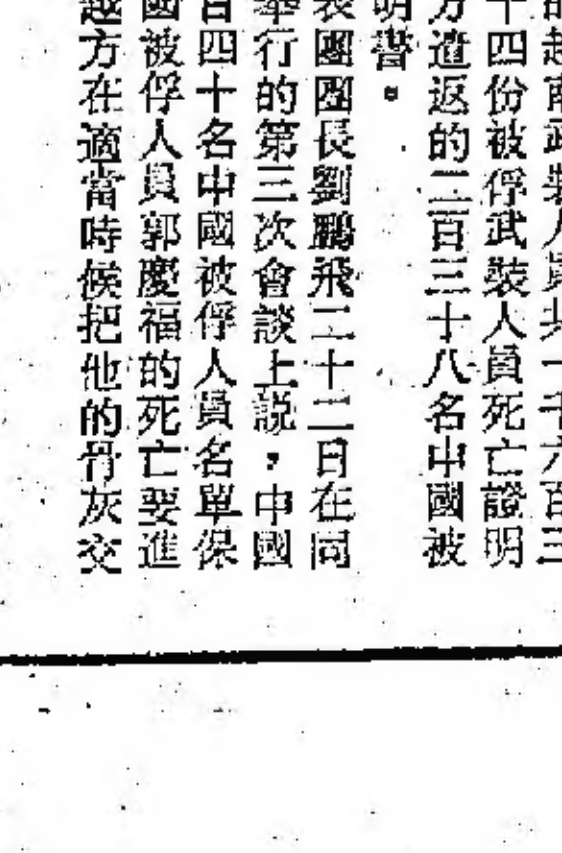 的越南武裝人員共一千六百三
十四份被俘武裝人員死亡證明
方遣返的二百三十八名中國被
明書。
表團團長劉鵬飛二十二日在同
舉行的第三次會談上說，中國
百四十名中國被俘人員名單保
國被俘人員郭慶福的死亡要進
越方在適當時候把他的骨灰交